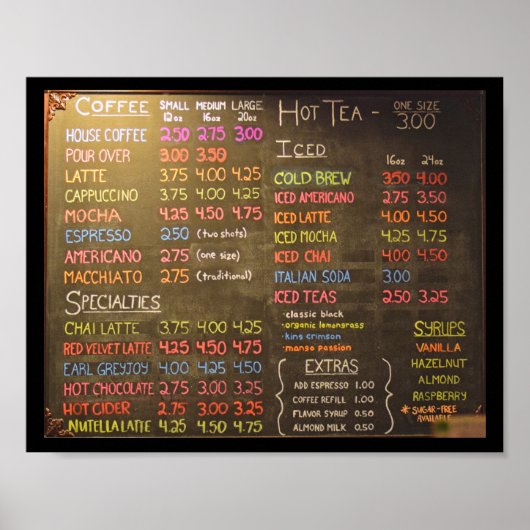 COFFEE SMALL 12oz MEDIUM 16oz LARGE 20oz
HOUSE COFFEE 2.50 2.75 3.00
POUR OVER 3.00 3.50
LATTE 3.75 4.00 4.25
CAPPUCCINO 3.75 4.00 4.25
MOCHA 4.25 4.50 4.75
ESPRESSO 2.50 (two shots)
AMERICANO 2.75 (one size)
MACCHIATO 2.75 (traditional)
SPECIALTIES
CHAI LATTE 3.75 4.00 4.25
RED VELVET LATTE 4.25 4.50 4.75
EARL GREYJOY 4.00 4.25 4.50
HOT CHOCOLATE 2.75 3.00 3.25
HOT CIDER 2.75 3.00 3.25
NUTELLA LATTE 4.25 4.50 4.75
HOT TEA - ONE SIZE 3.00
ICED
16oz 24oz
COLD BREW 3.50 4.00
ICED AMERICANO 2.75 3.50
ICED LATTE 4.00 4.50
ICED MOCHA 4.25 4.75
ICED CHAI 4.00 4.50
ITALIAN SODA 3.00
ICED TEAS 2.50 3.25
• classic black
• organic lemongrass
• king crimson
• mango passion
EXTRAS
ADD ESPRESSO 1.00
COFFEE REFILL 1.00
FLAVOR SYRUP 0.50
ALMOND MILK 0.50
SYRUPS
VANILLA
HAZELNUT
ALMOND
RASPBERRY
* SUGAR-FREE
AVAILABLE